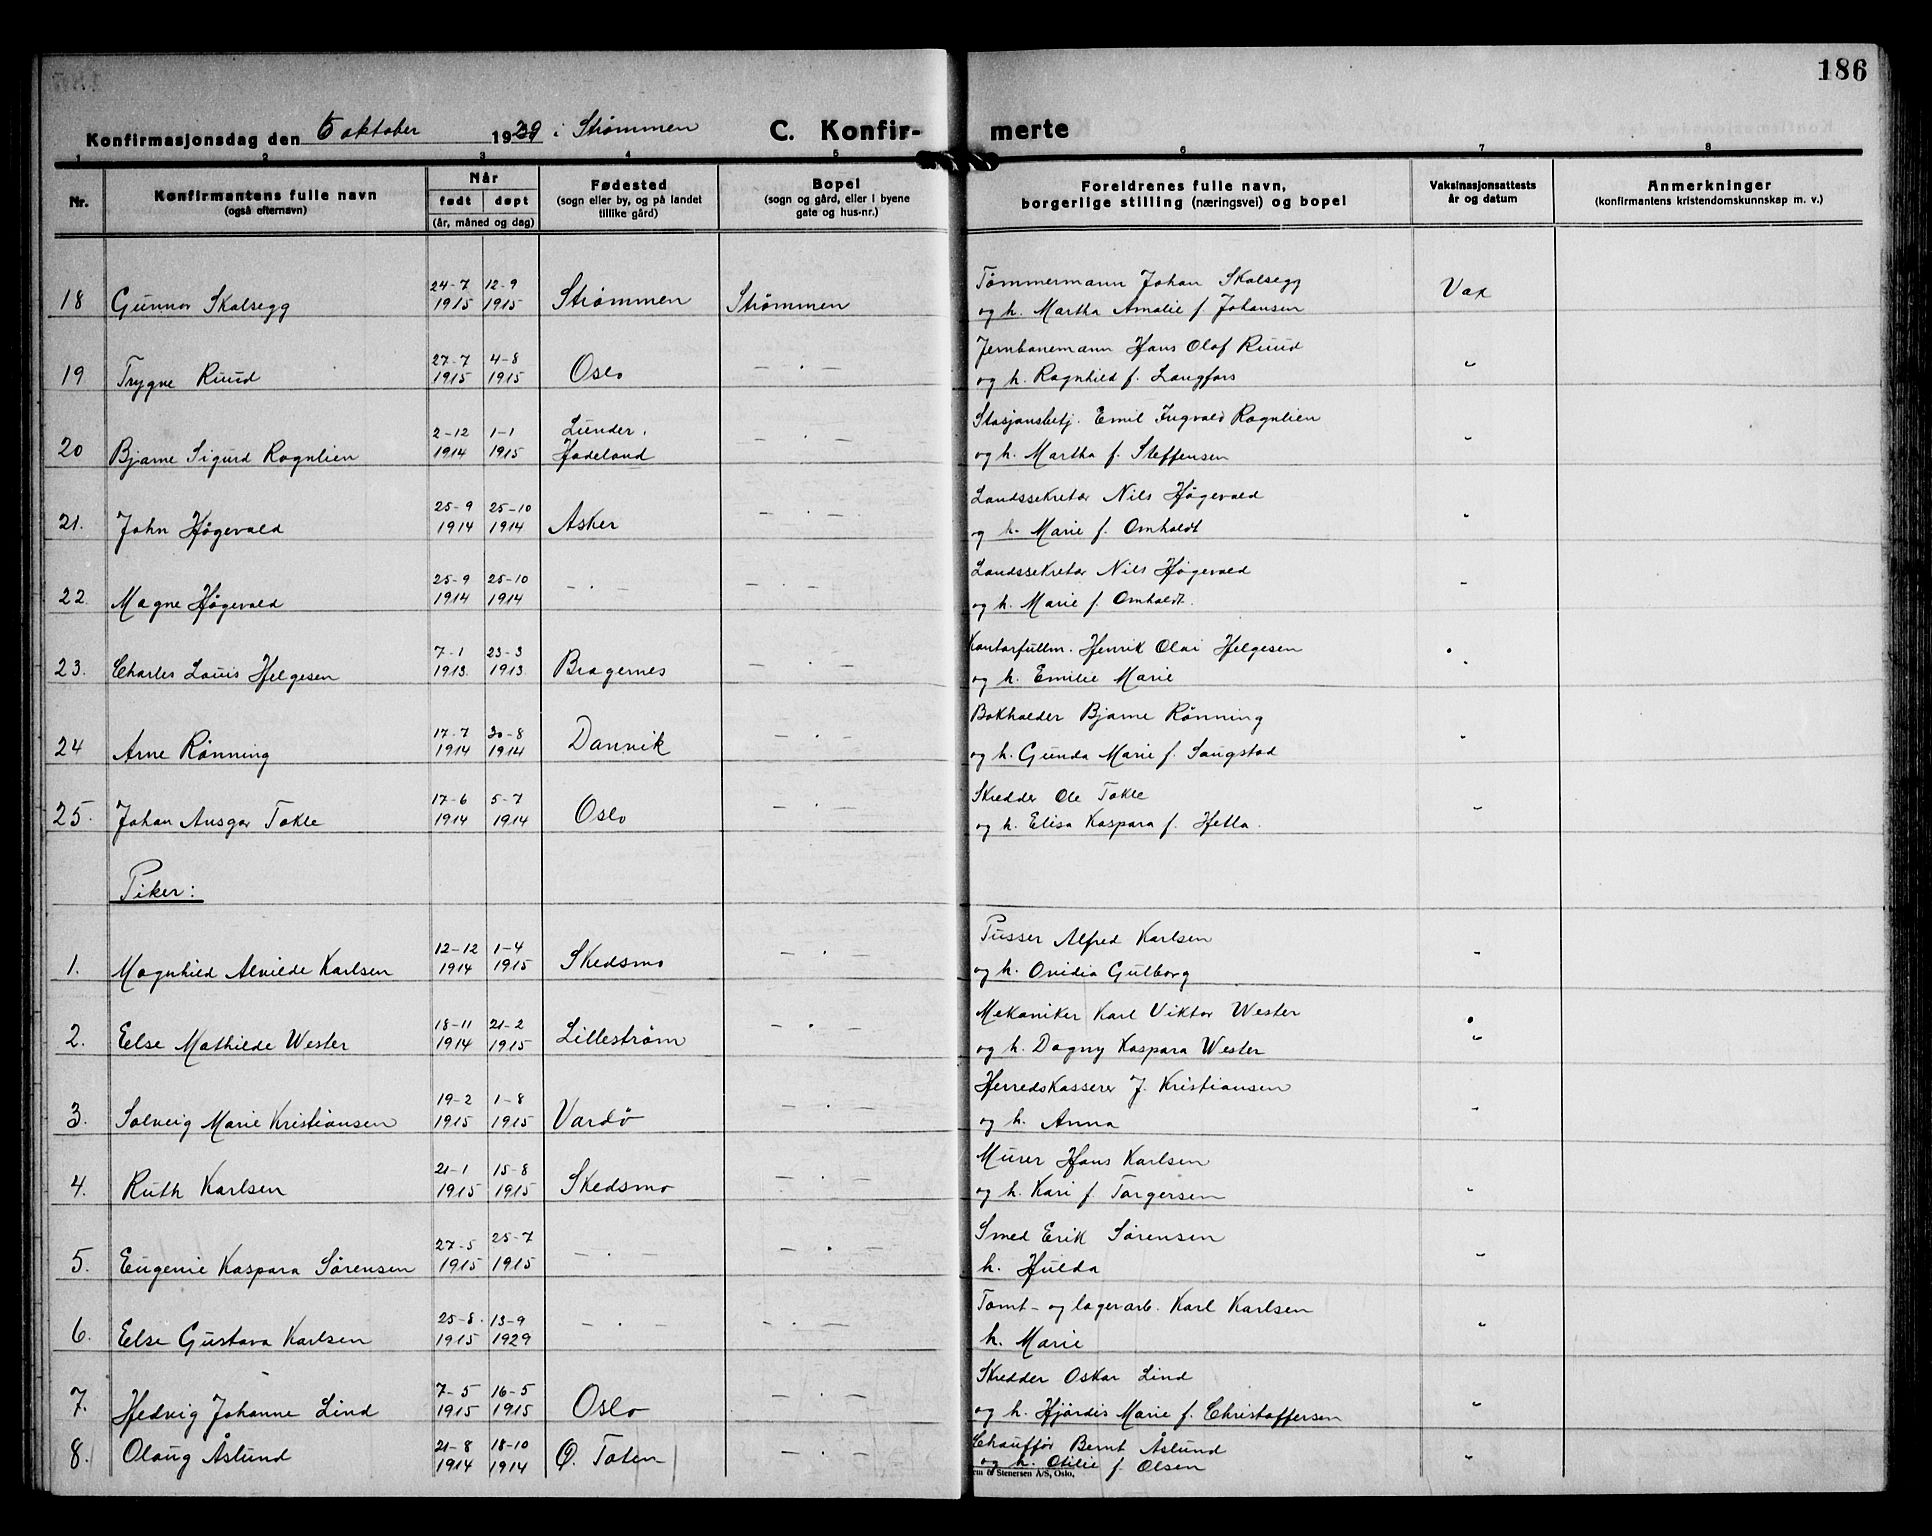 186
Konfirmasjonsdag den 6 oktober 1929 i Strømmen C. Konfir- merte
1 2 3 4 5 6 7 8
Nr. Konfirmantens fulle navn (også efternavn) Når født døpt (år, måned og dag) Fødested (sogn eller by, og på landet tillike gård) Bopel (sogn og gård, eller i byene gate og hus-nr.) Foreldrenes fulle navn, borgerlige stilling (næringsvei) og bopel Vaksinasjonsattests år og datum Anmerkninger (konfirmantens kristendomskunnskap m. v.)
24-7 12-9 Tømmermann Johan Skalsegg
18 Gunnar Skalsegg 1915 1915 Strømmen Strømmen og h. Martha Amalie f. Johansen Vax
27-7 4-8 Jernbanemann Hans Olaf Ruud
19 Trygve Ruud 1915 1915 Oslo — " — og h. Ragnhild f. Langfors "
2-12 1-1 Lunder. Stasjonsbetj. Emil Ingvald Rognlien
20 Bjarne Sigurd Rognlien 1914 1915 Hadeland — " — og h. Martha f. Steffensen "
25-9 25-10 Landssekretær Nils Høgevold
21. John Høgevold 1914 1914 Asker — " — og h. Marie f. Omholdt "
25-9 25-10 Landssekretær Nils Høgevold
22. Magne Høgevold 1914 1914 — " — — " — og h. Marie f. Omholdt. "
7-1 23-3 Kontorfullm. Henrik Olai Helgesen
23. Charles Louis Helgesen 1913 1913 Bragernes — " — og h. Emilie Marie "
17-7 30-8 Bokholder Bjarne Rønning
24 Arne Rønning 1914 1914 Danvik — " — og h. Gunda Marie f. Saugstad "
17-6 5-7 Skredder Ole Takle
25. Johan Ansgar Takle 1914 1914 Oslo — " — og h. Elisa Kaspara f. Hella. "
Piker:
12-12 1-4 Pusser Alfred Karlsen
1. Magnhild Alvilde Karlsen 1914 1915 Skedsmo — " — og h. Ovidia Gulborg "
18-11 21-2 Mekaniker Karl Viktor Wester
2. Else Mathilde Wester 1914 1915 Lillestrøm — " — og h. Dagny Kaspara Wester "
19-2 1-8 Herredskasserer J. Kristiansen
3. Solveig Marie Kristiansen 1915 1915 Vardø — " — og h. Anna "
21-1 15-8 Murer Hans Karlsen
4. Ruth Karlsen 1915 1915 Skedsmo — " — og h. Kari f. Torgersen "
27-5 25-7 Smed Erik Sørensen
5. Eugenie Kaspara Sørensen 1915 1915 — " — — " — h. Hulda "
25-8 13-9 Tomt- og lagerarb. Karl Karlsen
6. Else Gustava Karlsen 1915 1929 — " — — " — h. Marie "
7-5 16-5 Skredder Oskar Lind
7. Hedvig Johanne Lind 1915 1915 Oslo — " — og h. Hjørdis Marie f. Christoffersen "
21-8 18-10 Chauffør Bernt Åslund
8. Olaug Åslund 1914 1914 Ø. Toten — " — og h. Otilie f. Olsen "
& Stenersen A/S, Oslo.